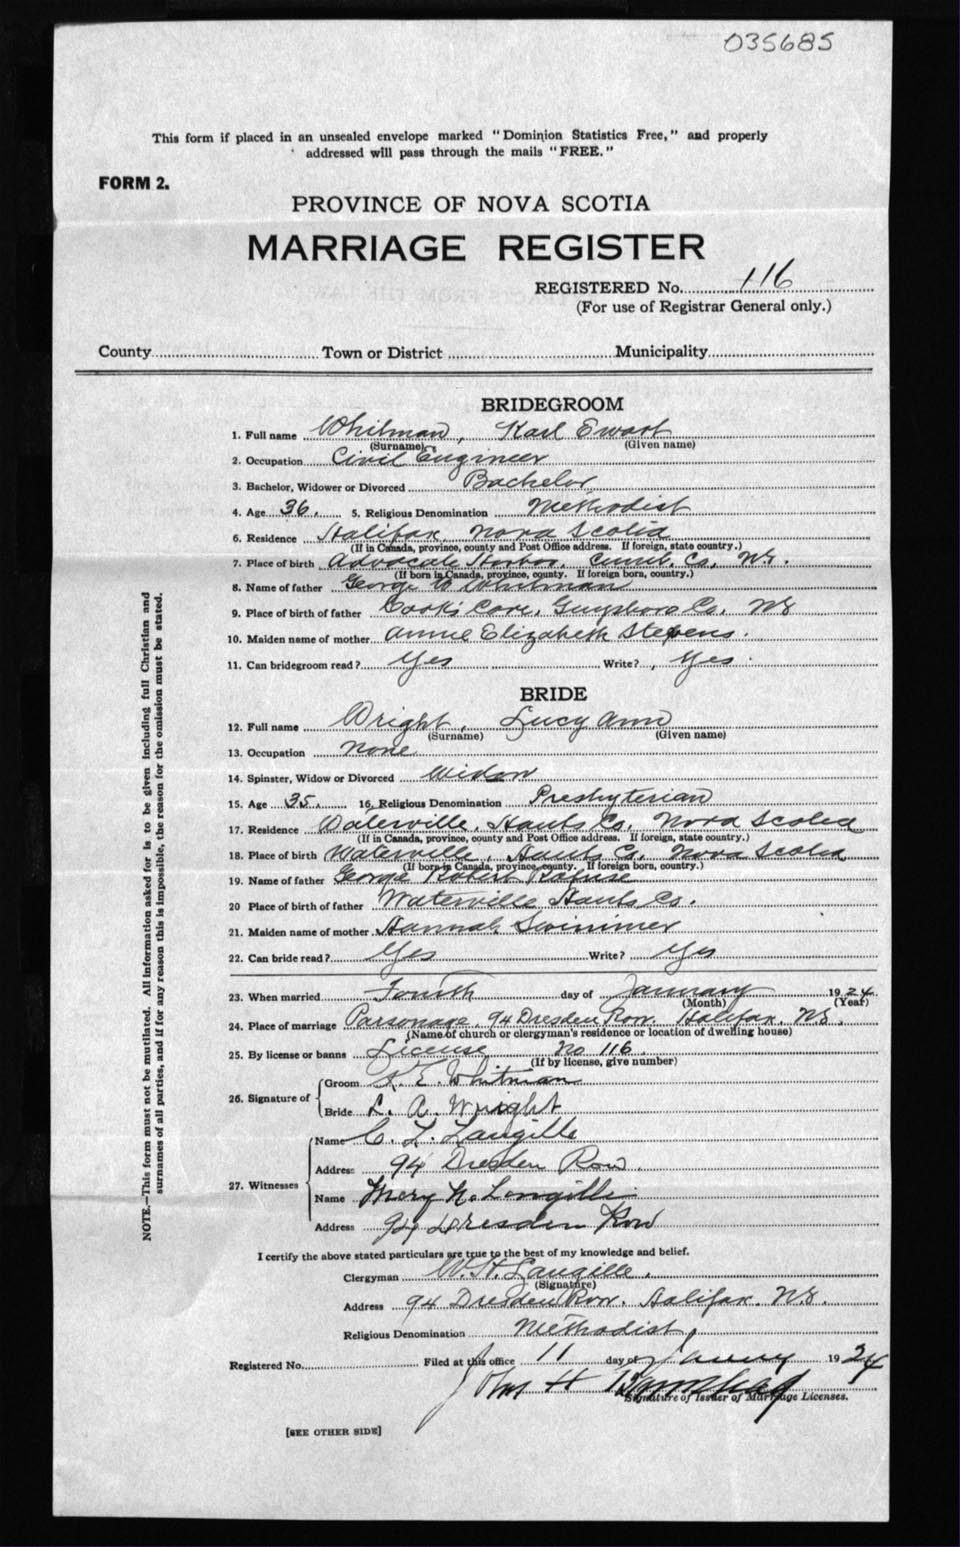 035685
This form if placed in an unsealed envelope marked "Dominion Statistics Free," and properly
addressed will pass through the mails "FREE."
FORM 2.
PROVINCE OF NOVA SCOTIA
MARRIAGE REGISTER
REGISTERED No. 116
(For use of Registrar General only.)
County Town or District Municipality
BRIDEGROOM
1. Full name Whitman, Karl Ewart
(Surname) (Given name)
2. Occupation Civil Engineer
3. Bachelor, Widower or Divorced Bachelor
4. Age 36. 5. Religious Denomination Methodist
6. Residence Halifax, Nova Scotia
(If in Canada, province, county and Post Office address. If foreign, state country.)
7. Place of birth Advocate Harbor, Cumb. Co, N.S.
(If born in Canada, province, county. If foreign born, country.)
8. Name of father George Whitman
9. Place of birth of father Cook's Cove, Guysboro Co. NS
10. Maiden name of mother Annie Elizabeth Stevens.
11. Can bridegroom read? Yes Write? Yes
BRIDE
12. Full name Wright, Lucy Ann
(Surname) (Given name)
13. Occupation None
14. Spinster, Widow or Divorced Widow
15. Age 35. 16. Religious Denomination Presbyterian
17. Residence Waterville, Hants Co, Nova Scotia
(If in Canada, province, county and Post Office address. If foreign, state country.)
18. Place of birth Waterville, Hants Co. Nova Scotia
(If born in Canada, province, county. If foreign born, country.)
19. Name of father George Robert Rafuse
20 Place of birth of father Waterville Hants Co.
21. Maiden name of mother Hannah Swimmer
22. Can bride read? Yes Write? Yes
23. When married Fourth day of January 1924.
(Month) (Year)
24. Place of marriage Parsonage, 94 Dresden Row. Halifax. NS.
(Name of church or clergyman's residence or location of dwelling house)
25. By license or banns License No 116
(If by license, give number)
26. Signature of
Groom K. E. Whitman
Bride L. A. Wright
27. Witnesses
Name C. L. Langille
Address 94 Dresden Row.
Name Mary N. Langille
Address 94 Dresden Row
I certify the above stated particulars are true to the best of my knowledge and belief.
Clergyman W. H. Langille.
(Signature)
Address 94 Dresden Row. Halifax. N.S.
Religious Denomination Methodist,
Registered No. Filed at this office 11 day of January 1924
John H
Signature of Issuer of Marriage Licenses.
[SEE OTHER SIDE]
NOTE.—This form must not be mutilated. All information asked for is to be given including full Christian and
surnames of all parties, and if for any reason this is impossible, the reason for the omission must be stated.